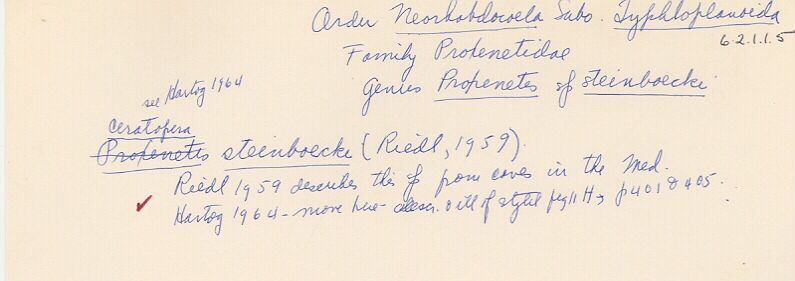 Order Neorhabdocoela Subo. Typhloplanoida
6.2.1.1.5
Family Proxenetidae
Genus Proxenetes sp steinboecki
see Hartog 1964
Ceratopera
Proxenetes steinboecki (Riedl, 1959).
Riedl 1959 describes this sp from caves in the Med.
✓ Hartog 1964 - more here - descr. & ill of stylet fig 11 H, p 401 & 405.